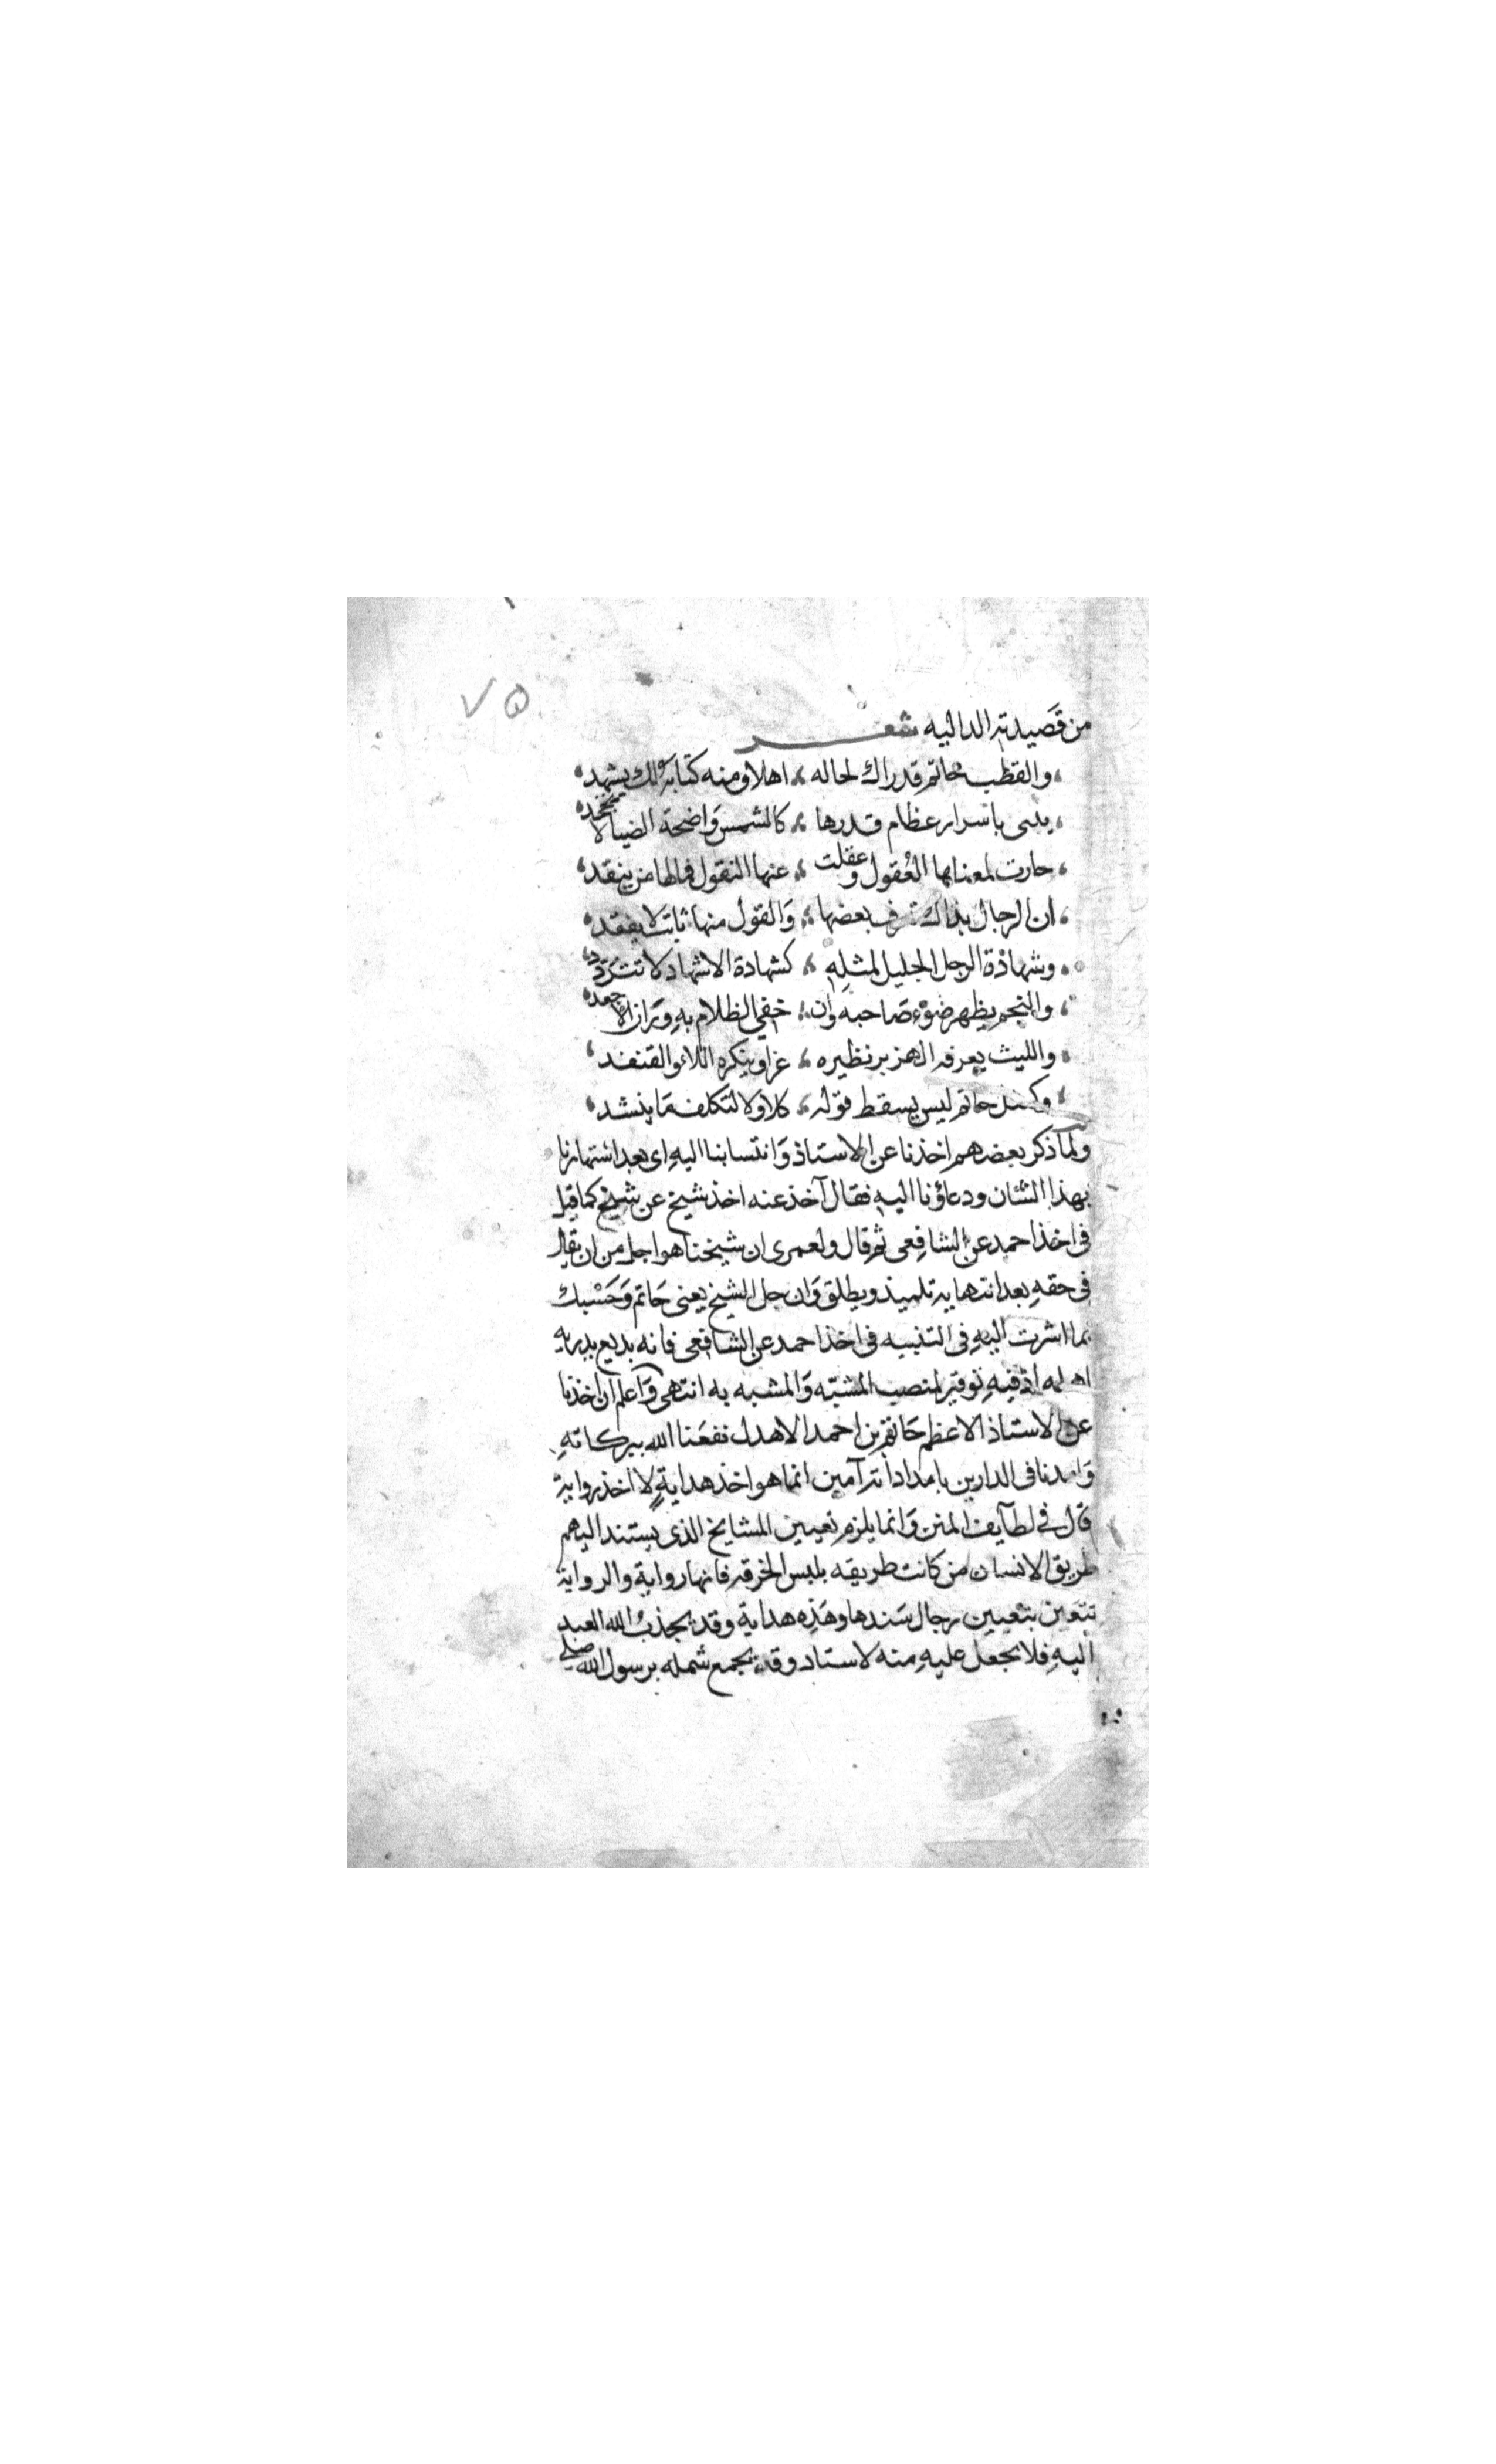 ٧٥
من قصيدته الداليه شعر
والقطب حاتم قد راك لحاله اهلا ومنه كتابة لك يشهد
يدني باسرار عظام قدرها كالشمس واضحة الضيا لا يجحد
حارت لمعناها العقول وعقلت عنها النقول فمالها من ينقد
ان الرجال بذاك تعرف بعضها والقول منها ثابت لا يفقد
وشهادة الرجل الجليل لمثله كشهادة الاشهاد لا تتردد
والنجم يظهر ضوء صاحبه وان خفي الظلام به وران
والليث يعرفه الهزبر نظيره عزا وينكره والقنفد
حاتم ليس يسقط قوله كلا ولا لتكلف ما ينشد
ولما ذكر بعضهم اخذنا عن الاستاذ وانتسابنا اليه اى بعد اشتهارنا
بهذا الشان ودعاؤنا اليه فقال آخذ عنه اخذ شيخ عن شيخ كما قيل
فى اخذ احمد عن الشافعى ثم قال ولعمرى ان شيخنا هو اجل من ان يقال
فى حقه بعد انتهايه تلميذ ويطلق وان جل الشيخ يعنى حاتم وحسبك
بما اشرت اليه فى التنبيه فى اخذ احمد عن الشافعى فانه بديع يدريه
اهله اذ فيه توقير لمنصب المشبه والمشبه به انتهى واعلم ان اخذنا
عن الاستاذ الاعظم حاتم بن احمد الاهدل نفعنا الله ببركاته
وامدنا فى الدارين بامداداته آمين انما هو اخذ هداية لا اخذ رواية
قال في لطآيف المنن وانما يلزم تعيين المشايخ الذى يستند اليهم
طريق الانسان من كانت طريقه بلبس الخرقه فانها رواية والرواية
تتعين بتعيين رجال سندها وهذه هداية وقد يجذب الله العبد
اليه فلا يجعل عليه منه لاستاد وقد يجمع شمله برسول الله صلى